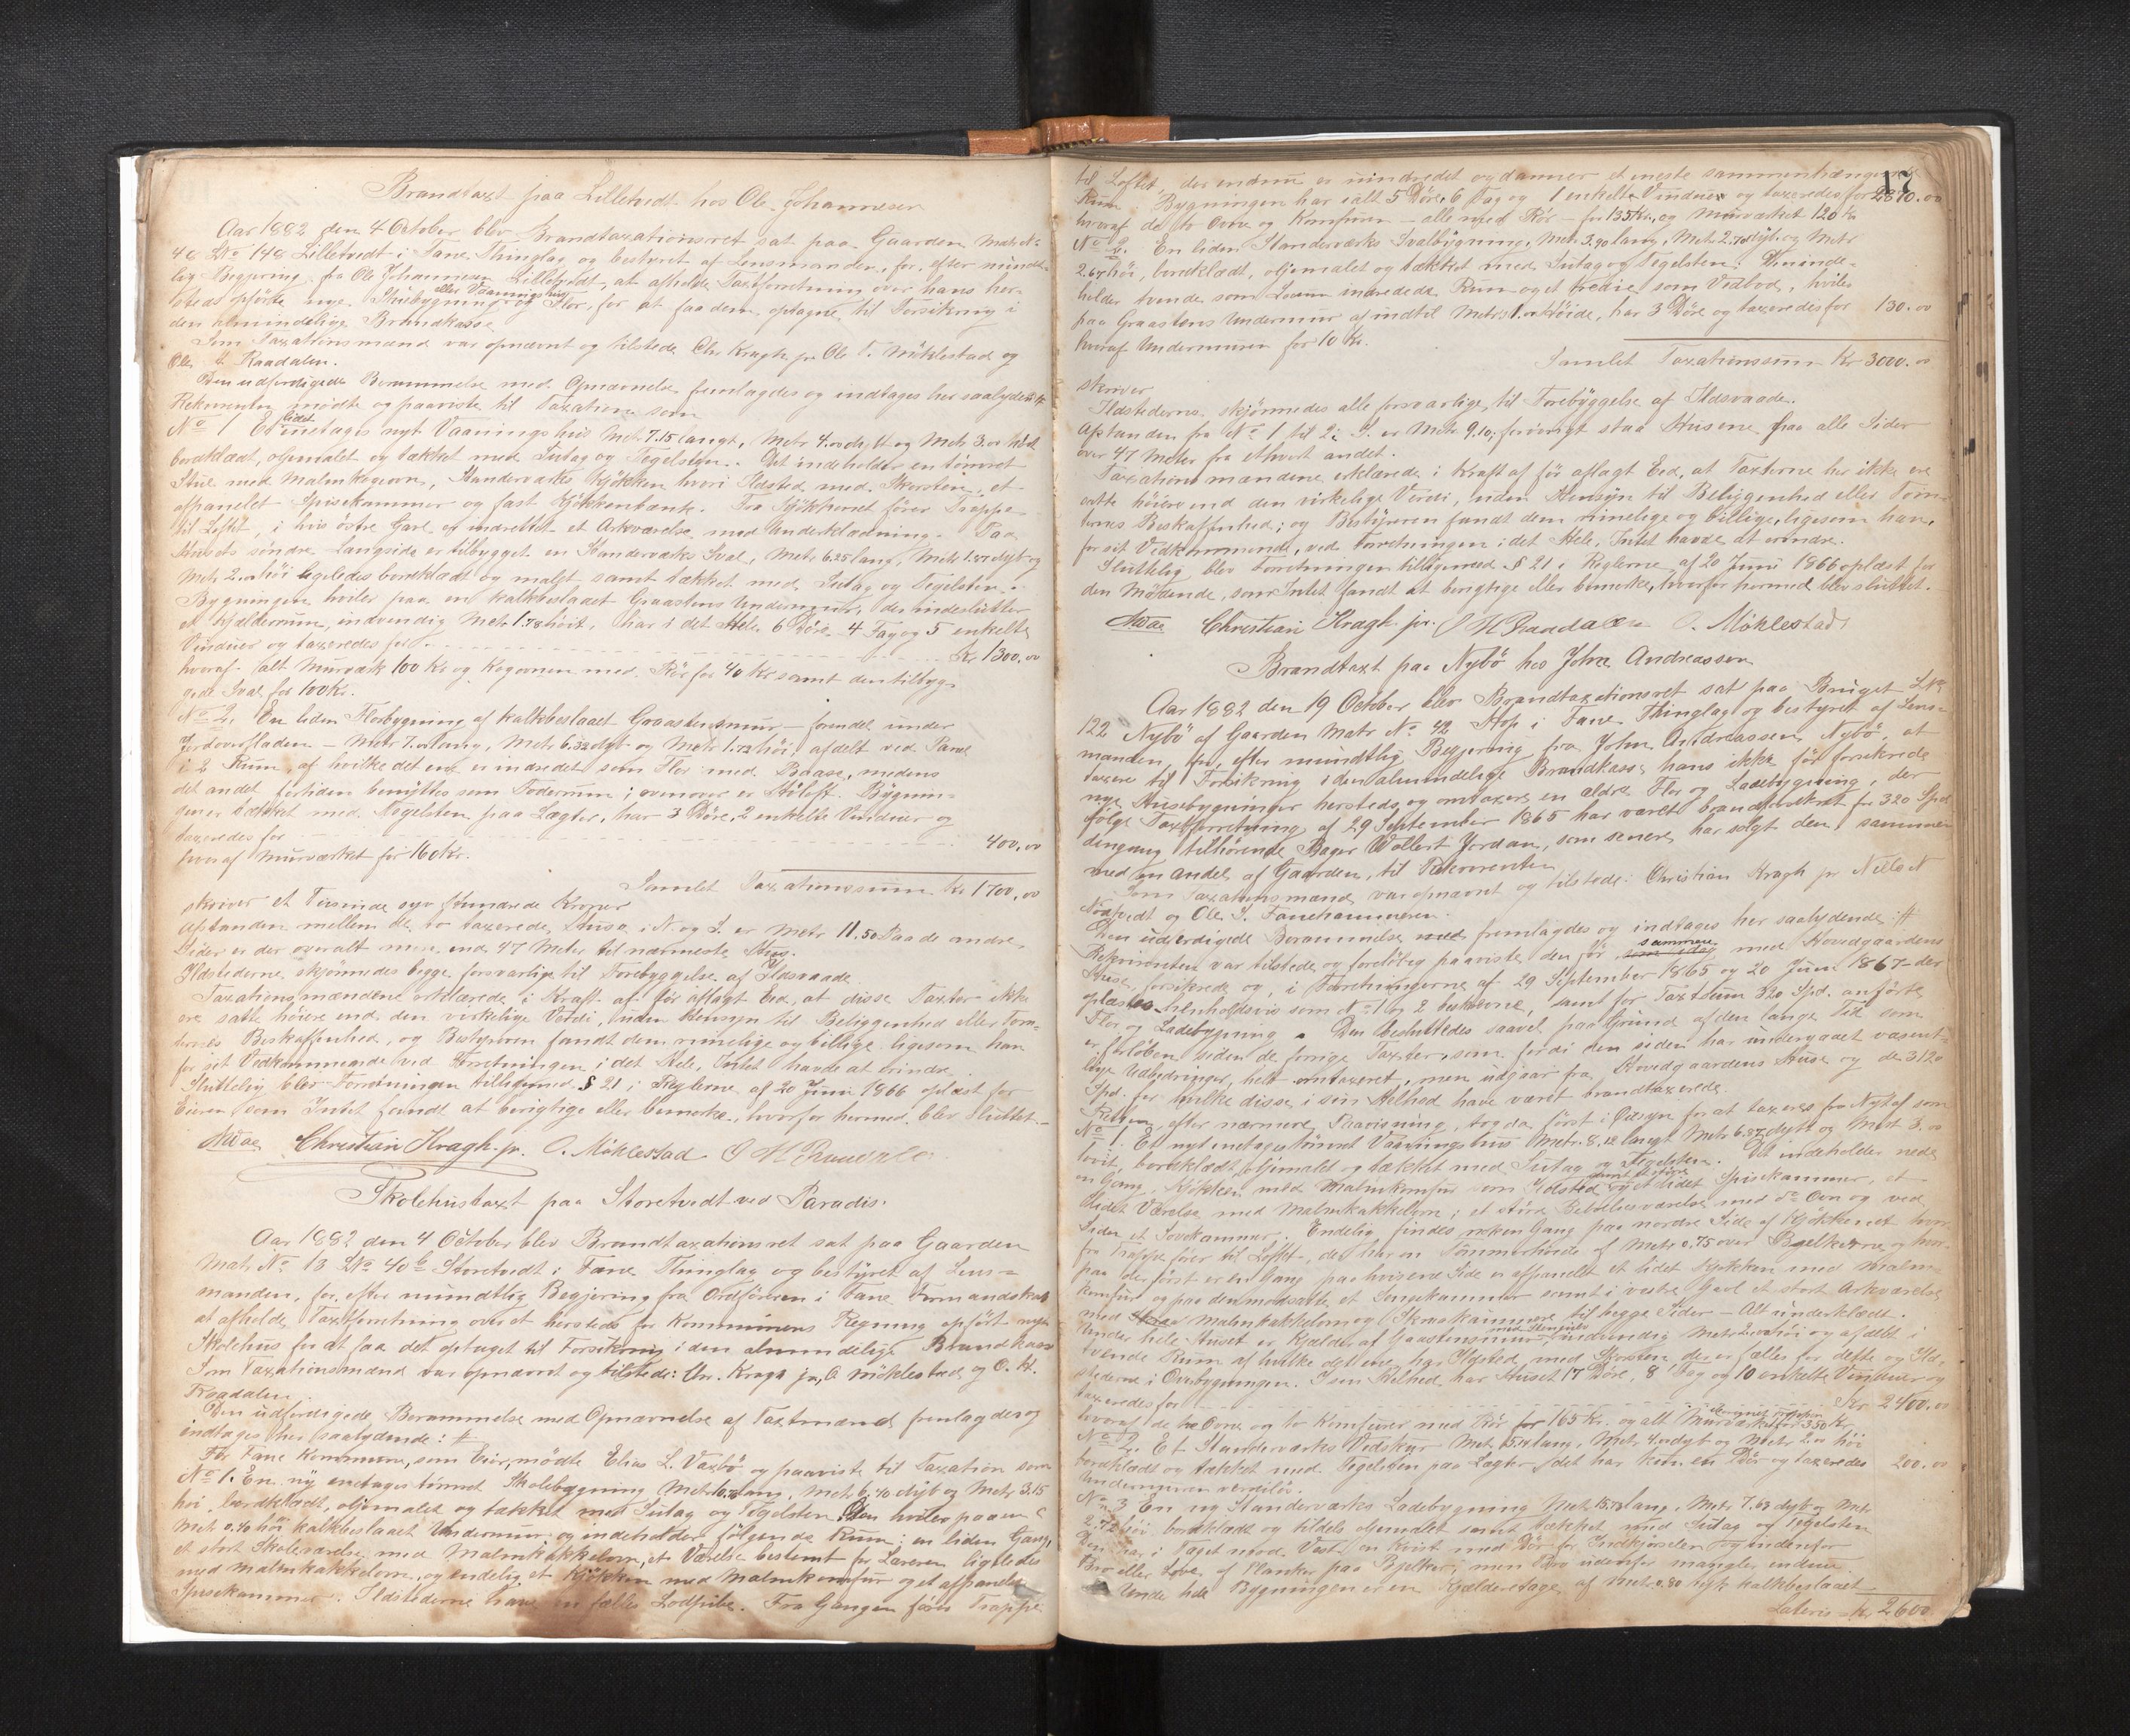 Brandtaxt paa Lilletvedt hos Ole Johannesen
Aar 1882 den 4 October blev Brandtaxationsret sat paa Gaarden Matr No
48 LNo 148 Lilletvedt i Fane Thinglag og bestyret af Lensmanden, for, efter mundt-
lig Begjering fra Ole Johannesen Lilletvedt, at afholde Taxtforretning over hans her-
steds opførte nye Stuebygning eller Vaaningshus og Flor, for at faa dem optagne til Forsikring i
den almindelige Brandkasse.
Som Taxationsmænd var opnævnt og tilstede Chr Kragh jr, Ole T. Møklestad og
Ole H. Raadalen.
Den udfærdigede Berammelse med Opnævnelse fremlagdes og indtages her saalydende #
Rekvirenten mødte og paaviste til Taxation som
No 1 Et lidet enetages nyt Vaaningshus Metr 7.15 langt, Metr 4. dybt og Metr 3. høit
bordklædt, oljemalet og tækket med Sutag og Tegelsten. Det indeholder en tømret
Stue med Malmkogeovn, Standerværks Kjøkken hvori Ildsted med Skorsten, et
afpanelet Spisekammer og fast Kjøkkenbænk. Fra Kjøkkenet fører Trappe
til Loftet, i hvis østre Gavl er indrettet et Arkværelse med Underklædning. Paa
Husets søndre Langside er tilbygget en Standerværks Sval, Metr 6.25 lang, Metr 1.47 dyb og
Metr 2. høi ligeledes bordklædt og malet samt tækket med Sutag og Tegelsten.
Bygningen hviler paa en kalkbeslaaet Graastens Undermur, der indeslutter
et Kjælderrum, indvendig Metr 1.78 høit, har i det Hele 6 Døre, 4 Fag og 5 enkelte
Vinduer og taxeredes for Kr 1300,00
hvoraf alt Murværk 100 Kr og Kogeovnen med Rør for 40 Kr samt den tilbyg-
gede Sval for 100 Kr.
No 2. En liden Florbygning af kalkbeslaaet Graastensmur – fundet under
Jordoverfladen – Metr 7. lang, Metr 6.32 dyb og Metr 1.72 høi, afdelt ved Panel
i 2 Rum, af hvilke det ene er indredet som Flor med Baase, medens
det andet fortiden benyttes som Foderrum; ovenover er Høloft. Bygnin-
gen er tækket med Tegelsten paa Lægter, har 3 Døre, 2 enkelte Vinduer og
taxeredes for 400,00
hvoraf Murværket for 160 Kr.
Samlet Taxationssum Kr 1700,00
skriver et Tusinde syv Hundrede Kroner
Afstanden mellem de to taxerede Huse i N. og S. er Metr 11.50 Paa de andre
Sider er der overalt mer end 47 Meter til nærmeste Hus.
Ildstederne skjønnedes begge forsvarlige til Forebyggelse af Ildsvaade.
Taxationsmændene erklærede i Kraft af før aflagt Eed, at disse Taxter ikke
ere satte høiere end den virkelige Værdi, uden Hensyn til Beliggenhed eller Tom-
ternes Beskaffenhed, og Bestyreren fandt dem rimelige og billige ligesom han
for sit Vedkommende ved Forretningen i det Hele, Intet havde at erindre.
Sluttelig blev Forretningen tilligemed § 21 i Reglerne af 20 Juni 1866 oplæst for
Eieren som Intet fandt at berigtige eller bemærke, hvorfor hermed blev sluttet.
Christian Kragh jr. O. Møklestad O H Raadalen
Skolehustaxt paa Storetvedt ved Paradis.
Aar 1882 den 4 October blev Brandtaxationsret sat paa Gaarden
Matr No 13 LNo 40 b Storetvedt i Fane Thinglag og bestyret af Lens-
manden, for, efter mundtlig Begjering fra Ordføreren i Fane Formandskab
at afholde Taxtforretning over et hersteds for Kommunens Regning opført nyt
Skolehus for at faa det optaget til Forsikring i den almindelige Brandkasse
Som Taxationsmænd var opnævnt og tilstede: Chr. Kragh jr, O Møklestad og O. H.
Raadalen.
Den udfærdigede Berammelse med Opnævnelse af Taxtmænd fremlagdes og
indtages her saalydende: #
For Fane Kommune, som Eier, mødte Elias L. Vaxbø og paaviste til Taxation som
No 1. En ny enetages tømret Skolebygning Metr lang, Metr 6.40 dyb og Metr 3.15
høi, bordklædt, oljemalet og tækket med Sutag og Tegelsten. Den hviler paa en
Metr 0.40 høi kalkbeslaaet Undermur og indeholder følgende Rum: en liden Gang,
et stort Skoleværelse med Malmkakkelovn, et Værelse bestemt for Læreren ligeledes
med Malmkakkelovn, og endelig et Kjøkken med Malmkomfur og et afpanelet
Spisekammer. Ildstederne have en fælles Lodpibe. Fra Gangen fører Trappe
17
til Loftet, der endnu er uindredet og danner et eneste sammenhængende
Rum. Bygningen har ialt 5 Døre, 6 Fag og 1 enkelt Vindue og taxeredes for 2870.00
hvoraf de to Ovne og Komfuren – alle med Rør – for 135 Kr. og Murværket 120 Kr
No 2. En liden Standerværks Svalbygning, Metr 3.90 lang, Metr 2.70 dyb og Metr
2.67 høi, bordklædt, oljemalet og tækket med Sutag og Tegelsten. Den inde-
holder tvende som Locum indredede Rum og et tredie som Vedbod, hviler
paa Graastens Undermur af indtil Metr 1. Høide, har 3 Døre og taxeredes for 130.00
hvoraf Undermuren for 10 Kr.
Samlet Taxationssum Kr 3000.00
skriver
Ildstederne skjønnedes alle forsvarlige til Forebyggelse af Ildsvaade.
Afstanden fra No 1 til 2 i S. er Metr 9.10; forøvrigt staa Husene paa alle Sider
over 47 Meter fra ethvert andet.
Taxationsmændene erklærede i Kraft af før aflagt Eed, at Taxterne her ikke ere
satte høiere end den virkelige Værdi, uden Hensyn til Beliggenhed eller Tom-
ternes Beskaffenhed; og Bestyreren fandt dem rimelige og billige, ligesom han,
for sit Vedkommende, ved Forretningen i det Hele, Intet havde at erindre.
Sluttelig blev Forretningen tilligemed § 21 i Reglerne af 20 Juni 1866 oplæst for
den Mødende, som Intet fandt at berigtige eller bemærke, hvorfor hermed blev sluttet.
Christian Kragh jr. O H Raadalen O. Møklestad
Brandtaxt paa Nybø hos John Andreassen
Aar 1882 den 19 October blev Brandtaxationsret sat paa Bruget LNo
122 Nybø af Gaarden Matr No 42 Hop i Fane Thinglag og bestyret af Lens-
manden, for, efter mundtlig Begjering fra John Andreassen Nybø, at
taxere til Forsikring i den almindelige Brandkasse hans ikke før forsikrede
nye Husebygninger hersteds og omtaxere en ældre Flor og Ladebygning, der
ifølge Taxtforretning af 29 September 1865 har været brandforsikret for 320 Spd
dengang tilhørende Bager Wollert Jordan, som senere har solgt den, sammen
med en Andel af Gaarden, til Rekvirenten
Som Taxationsmænd var opnævnt og tilstede: Christian Kragh jr Nils N
og Ole S. Fanehammeren.
Den udfærdigede Berammelse med fremlagdes og indtages her saalydende: #
Rekvirenten var tilstede og foreløbig paaviste den før sammen med Hovedgaardens
Huse forsikrede og, i Forretningerne af 29 September 1865 og 20 Juni 1867 der
oplæstes, henholdsvis som No 1 og 2 benævnte, samt for Taxtsum 320 Spd. anførte
Flor og Ladebygning. Den besluttedes saavel paa Grund af den lange Tid som
er forløben siden de forrige Taxter, som fordi den siden har undergaaet væsent-
lige Udbedringer, helt omtaxeret, men udgaar fra Hovedgaardens Huse og de 3120
Spd. for hvilke disse i sin Helhed have været brandtaxerede.
Retten, efter nærmere Paavisning, tog da først i Øiesyn for at taxeres fra Nyt af som
No 1. Et nyt enetages tømret Vaaningshus Metr. 8.12 langt Metr 6.87 dybt og Metr 3.
høit, bordklædt, oljemalet og tækket med Sutag og Tegelsten. Det indeholder neden
en Gang, Kjøkken med Malmkomfur som Ildsted og et lidet Spisekammer, et
lidet Værelse med Malmkakkelovn; et større Beboelsesværelse med do Ovn og ved
Siden et Sovekammer. Endelig findes nok en Gang paa nordre Side af Kjøkkenet hvor-
fra Trappe fører til Loftet, der har en Tømmerhøide af Metr 0.75 over Bjelkerne og hvor-
paa der først er en Gang paa hvis ene Side er afpanelet et lidet Kjøkken med Malm-
komfur og paa den modsatte et Sengekammer samt i vestre Gavl et stort Arkværelse
med Malmkakkelovn og Skraakammere til begge Sider – Alt underklædt.
Under hele Huset er Kjælder af Graastensmur, indvendig Metr 2. høi og afdelt i
tvende Rum af hvilke det ene har Ildsted med Skorsten, der er fælles for dette og Ild-
stederne i Overbygningen. I sin Helhed har Huset 17 Døre, 8 Fag og 10 enkelte Vinduer og
taxeredes for Kr 2400.00
hvoraf de to Ovne og to Komfurer med Rør for 165 Kr. og alt Murværket for 350 Kr
No 2. Et Standerværks Vedskur Metr 5. lang, Metr 4. dybt og Metr 2. høi
bordklædt og tækket med Tegelsten paa Lægter, det har kun en Dør og taxeredes 200.00
Undermuren værdiløs.
No 3 En ny Standerværks Ladebygning Metr 15.78 lang, Metr 7.69 dyb og Metr
2.72 høi bordklædt og tildels oljemalet samt tækket med Sutag og Tegelsten
Den har i Taget mod Vest en Kvist med Dør for Indkjørselen og indenfor
Bro eller Løve, af Planker paa Bjelker; men Bro udenfor mangler endnu.
Under hele Bygningen er en Kjælderetage af Metr 0.80 tyk kalkbeslaaet
Lateris Kr 2600